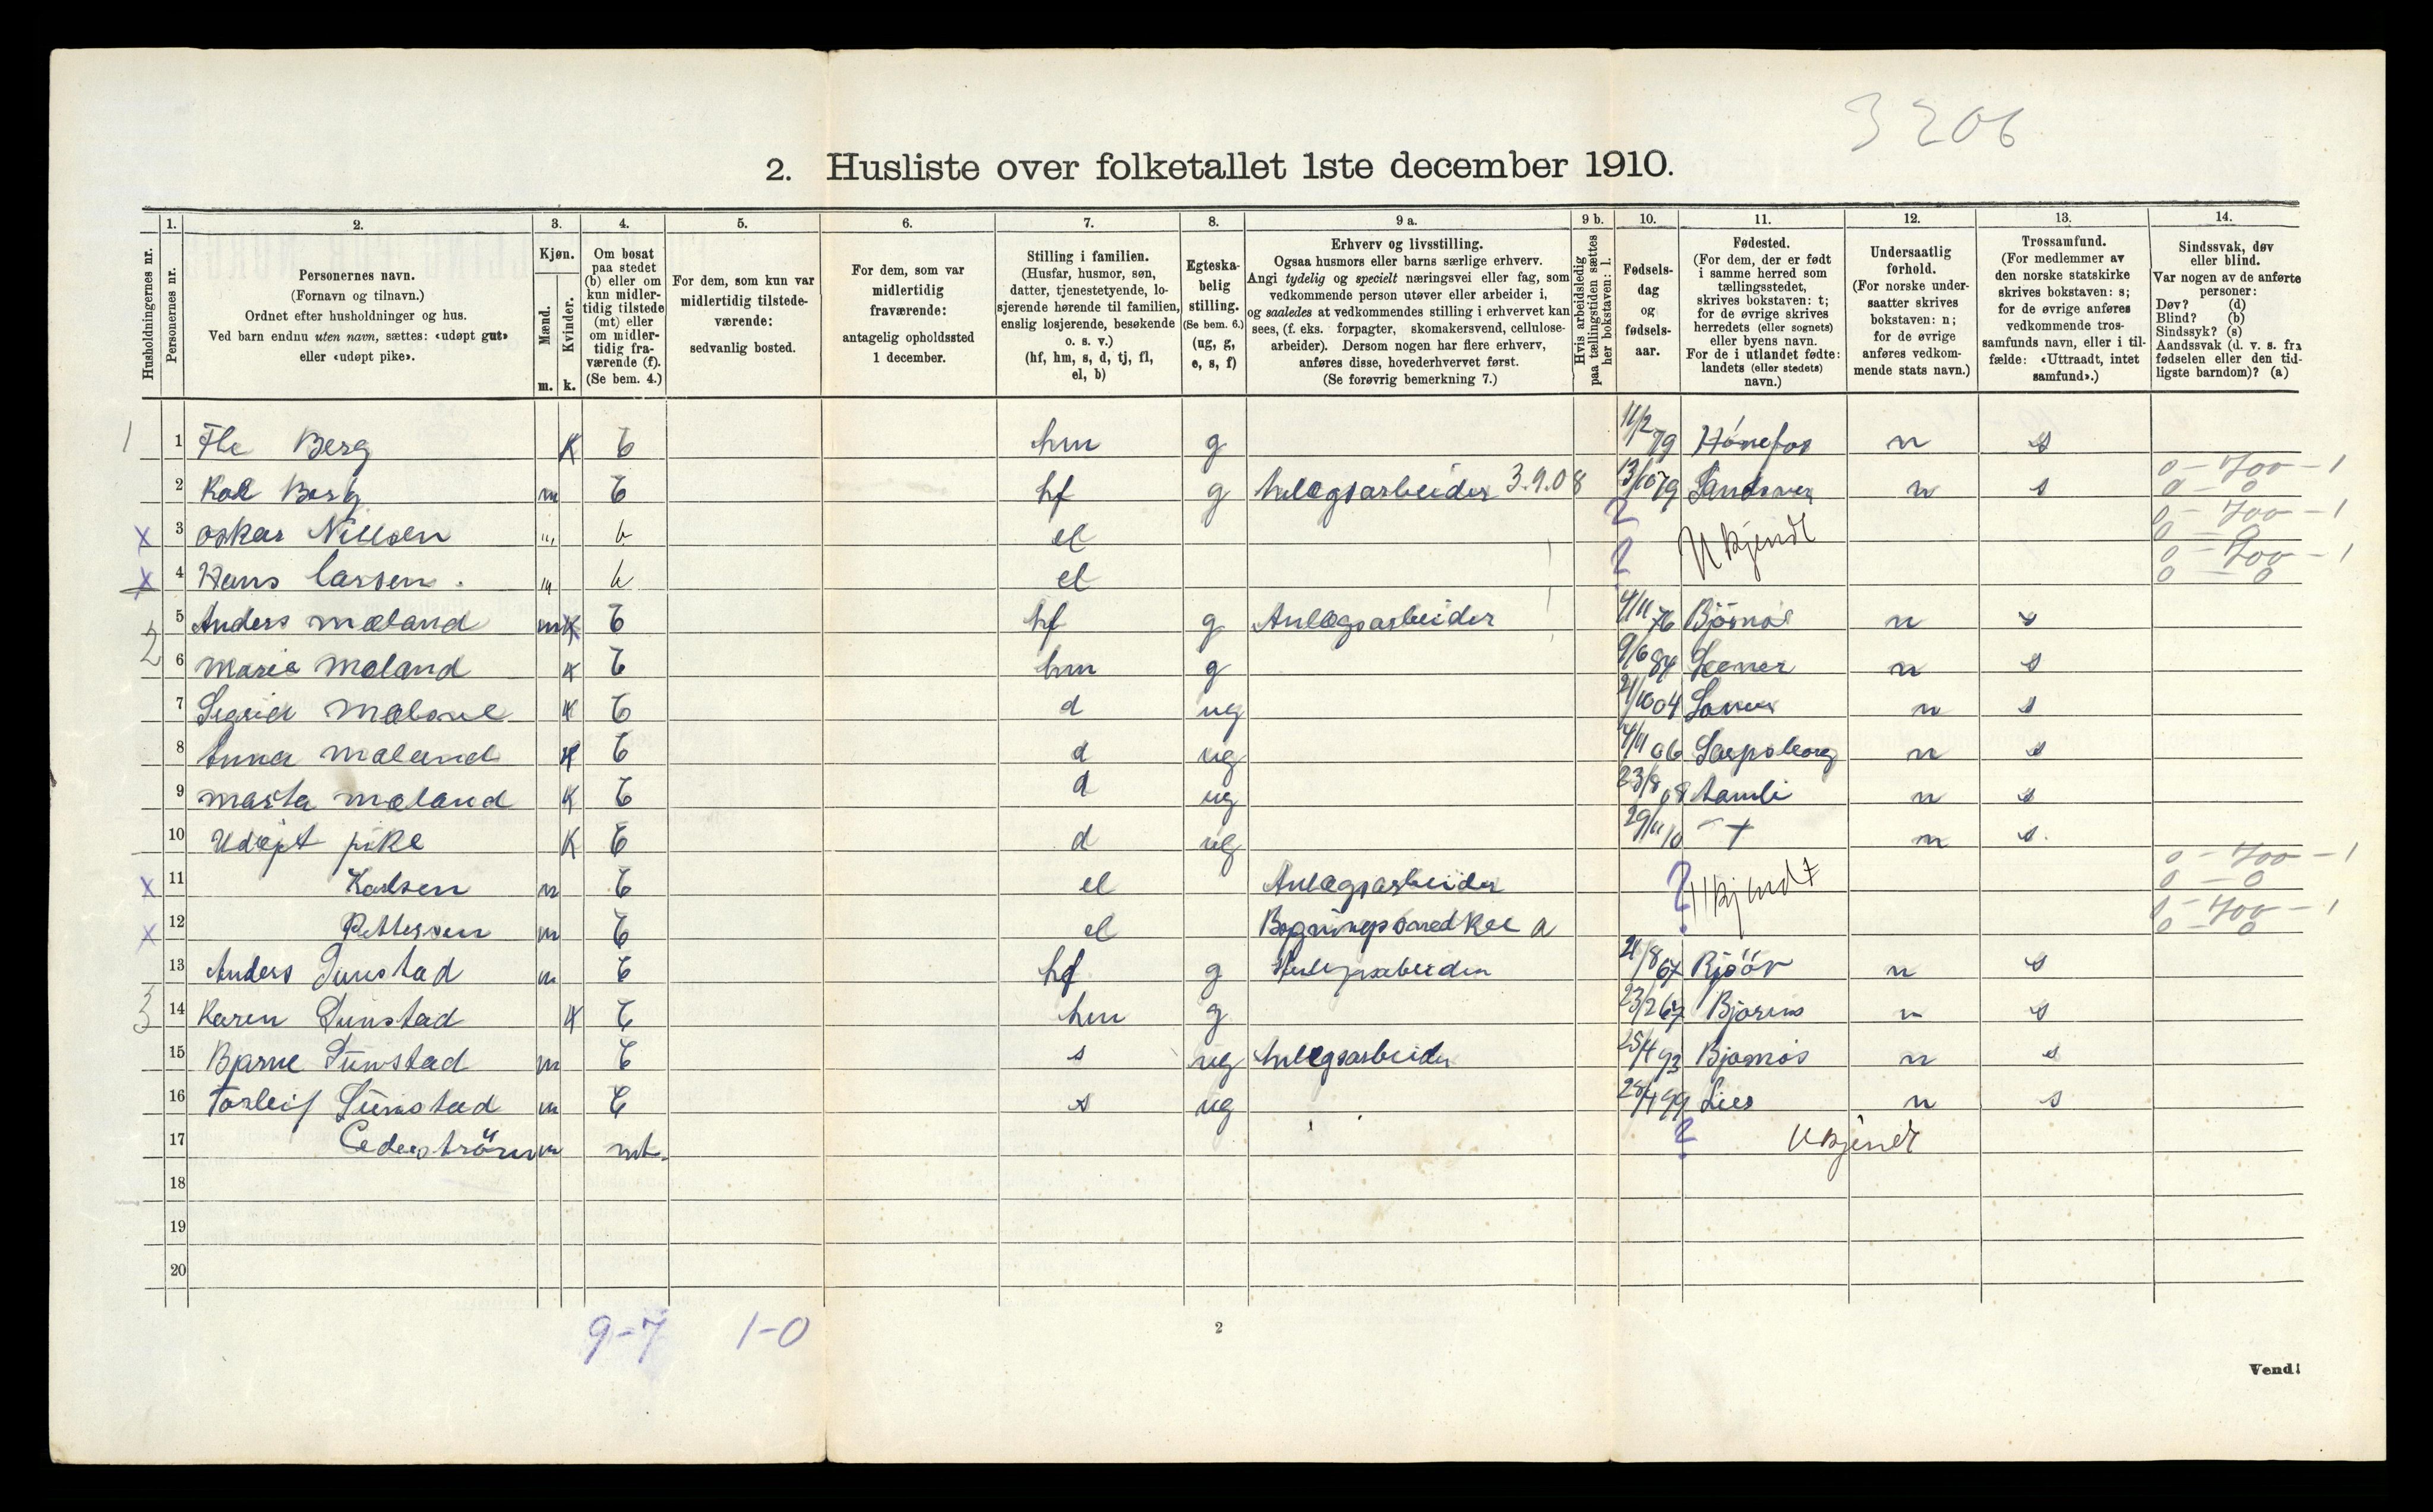 3206
2. Husliste over folketallet 1ste december 1910.
1. 2. 3. 4. 5. 6. 7. 8. 9 a. 9 b. 10. 11. 12. 13. 14.
Husholdningernes nr.
Personernes nr.
Personernes navn.
(Fornavn og tilnavn.)
Ordnet efter husholdninger og hus.
Ved barn endnu uten navn, sættes: «udøpt gut»
eller «udøpt pike».
Kjøn.
Mænd.
Kvinder.
m. k.
Om bosat
paa stedet
(b) eller om
kun midler-
tidig tilstede
(mt) eller
om midler-
tidig fra-
værende (f).
(Se bem. 4.)
For dem, som kun var
midlertidig tilstede-
værende:
sedvanlig bosted.
For dem, som var
midlertidig
fraværende:
antagelig opholdssted
1 december.
Stilling i familien.
(Husfar, husmor, søn,
datter, tjenestetyende, lo-
sjerende hørende til familien,
enslig losjerende, besøkende
o. s. v.)
(hf, hm, s, d, tj, fl,
el, b)
Egteska-
belig
stilling.
(Se bem. 6.)
(ug, g,
e, s, f)
Erhverv og livsstilling.
Ogsaa husmors eller barns særlige erhverv.
Angi tydelig og specielt næringsvei eller fag, som
vedkommende person utøver eller arbeider i,
og saaledes at vedkommendes stilling i erhvervet kan
sees, (f. eks. forpagter, skomakersvend, cellulose-
arbeider). Dersom nogen har flere erhverv,
anføres disse, hovederhvervet først.
(Se forøvrig bemerkning 7.)
Hvis arbeidsledig
paa tællingstiden sættes
her bokstaven: l.
Fødsels-
dag
og
fødsels-
aar.
Fødested.
(For dem, der er født
i samme herred som
tællingsstedet,
skrives bokstaven: t;
for de øvrige skrives
herredets (eller sognets)
eller byens navn.
For de i utlandet fødte:
landets (eller stedets)
navn.)
Undersaatlig
forhold.
(For norske under-
saatter skrives
bokstaven: n;
for de øvrige
anføres vedkom-
mende stats navn.)
Trossamfund.
(For medlemmer av
den norske statskirke
skrives bokstaven: s;
for de øvrige anføres
vedkommende tros-
samfunds navn, eller i til-
fælde: «Uttraadt, intet
samfund».)
Sindssvak, døv
eller blind.
Var nogen av de anførte
personer:
Døv? (d)
Blind? (b)
Sindssyk? (s)
Aandssvak (d. v. s. fra
fødselen eller den tid-
ligste barndom)? (a)
1 1 Berg K hm g 11/2 79 Hönefos n s
2 Berg m hf g Anlægsarbeider 3.9.08 13/10 79 n s 0-700-1 0-0
x 3 Oskar Nillsen m el ? Ukjendt 0-700-1 0-0
x 4 Hans Larsen el ? 0-700-1 0-0
2 5 Anders Mæland m hf g Anlægsarbeider 4/11 76 n s
6 Marie Mæland k hm g 9/6 84 n s
7 K d ug 21/10 04 n s
8 Anna Mæland K d ug 4/11 06 Sarpsborg n s
9 Marta Mæland K d ug 23/8 08 Aamli n s
10 Udøpt pike K d ug 29/11 10 t n s
x 11 Karlsen m el Anlægsarbeider ? Ukjendt 0-700-1 0-0
x 12 Pettersen m el ? 0-700-1 0-0
3 13 Anders m hf g 21/8 67 n s
14 Karen K hm g 23/2 67 n s
15 Bjarne m s ug Anlægsarbeider 25/4 93 n s
16 Torleif m s ug 28/4 99 n s
17 Cederström m mt. ? Ukjendt
18
19
20
9-7 1-0
2
Vend!